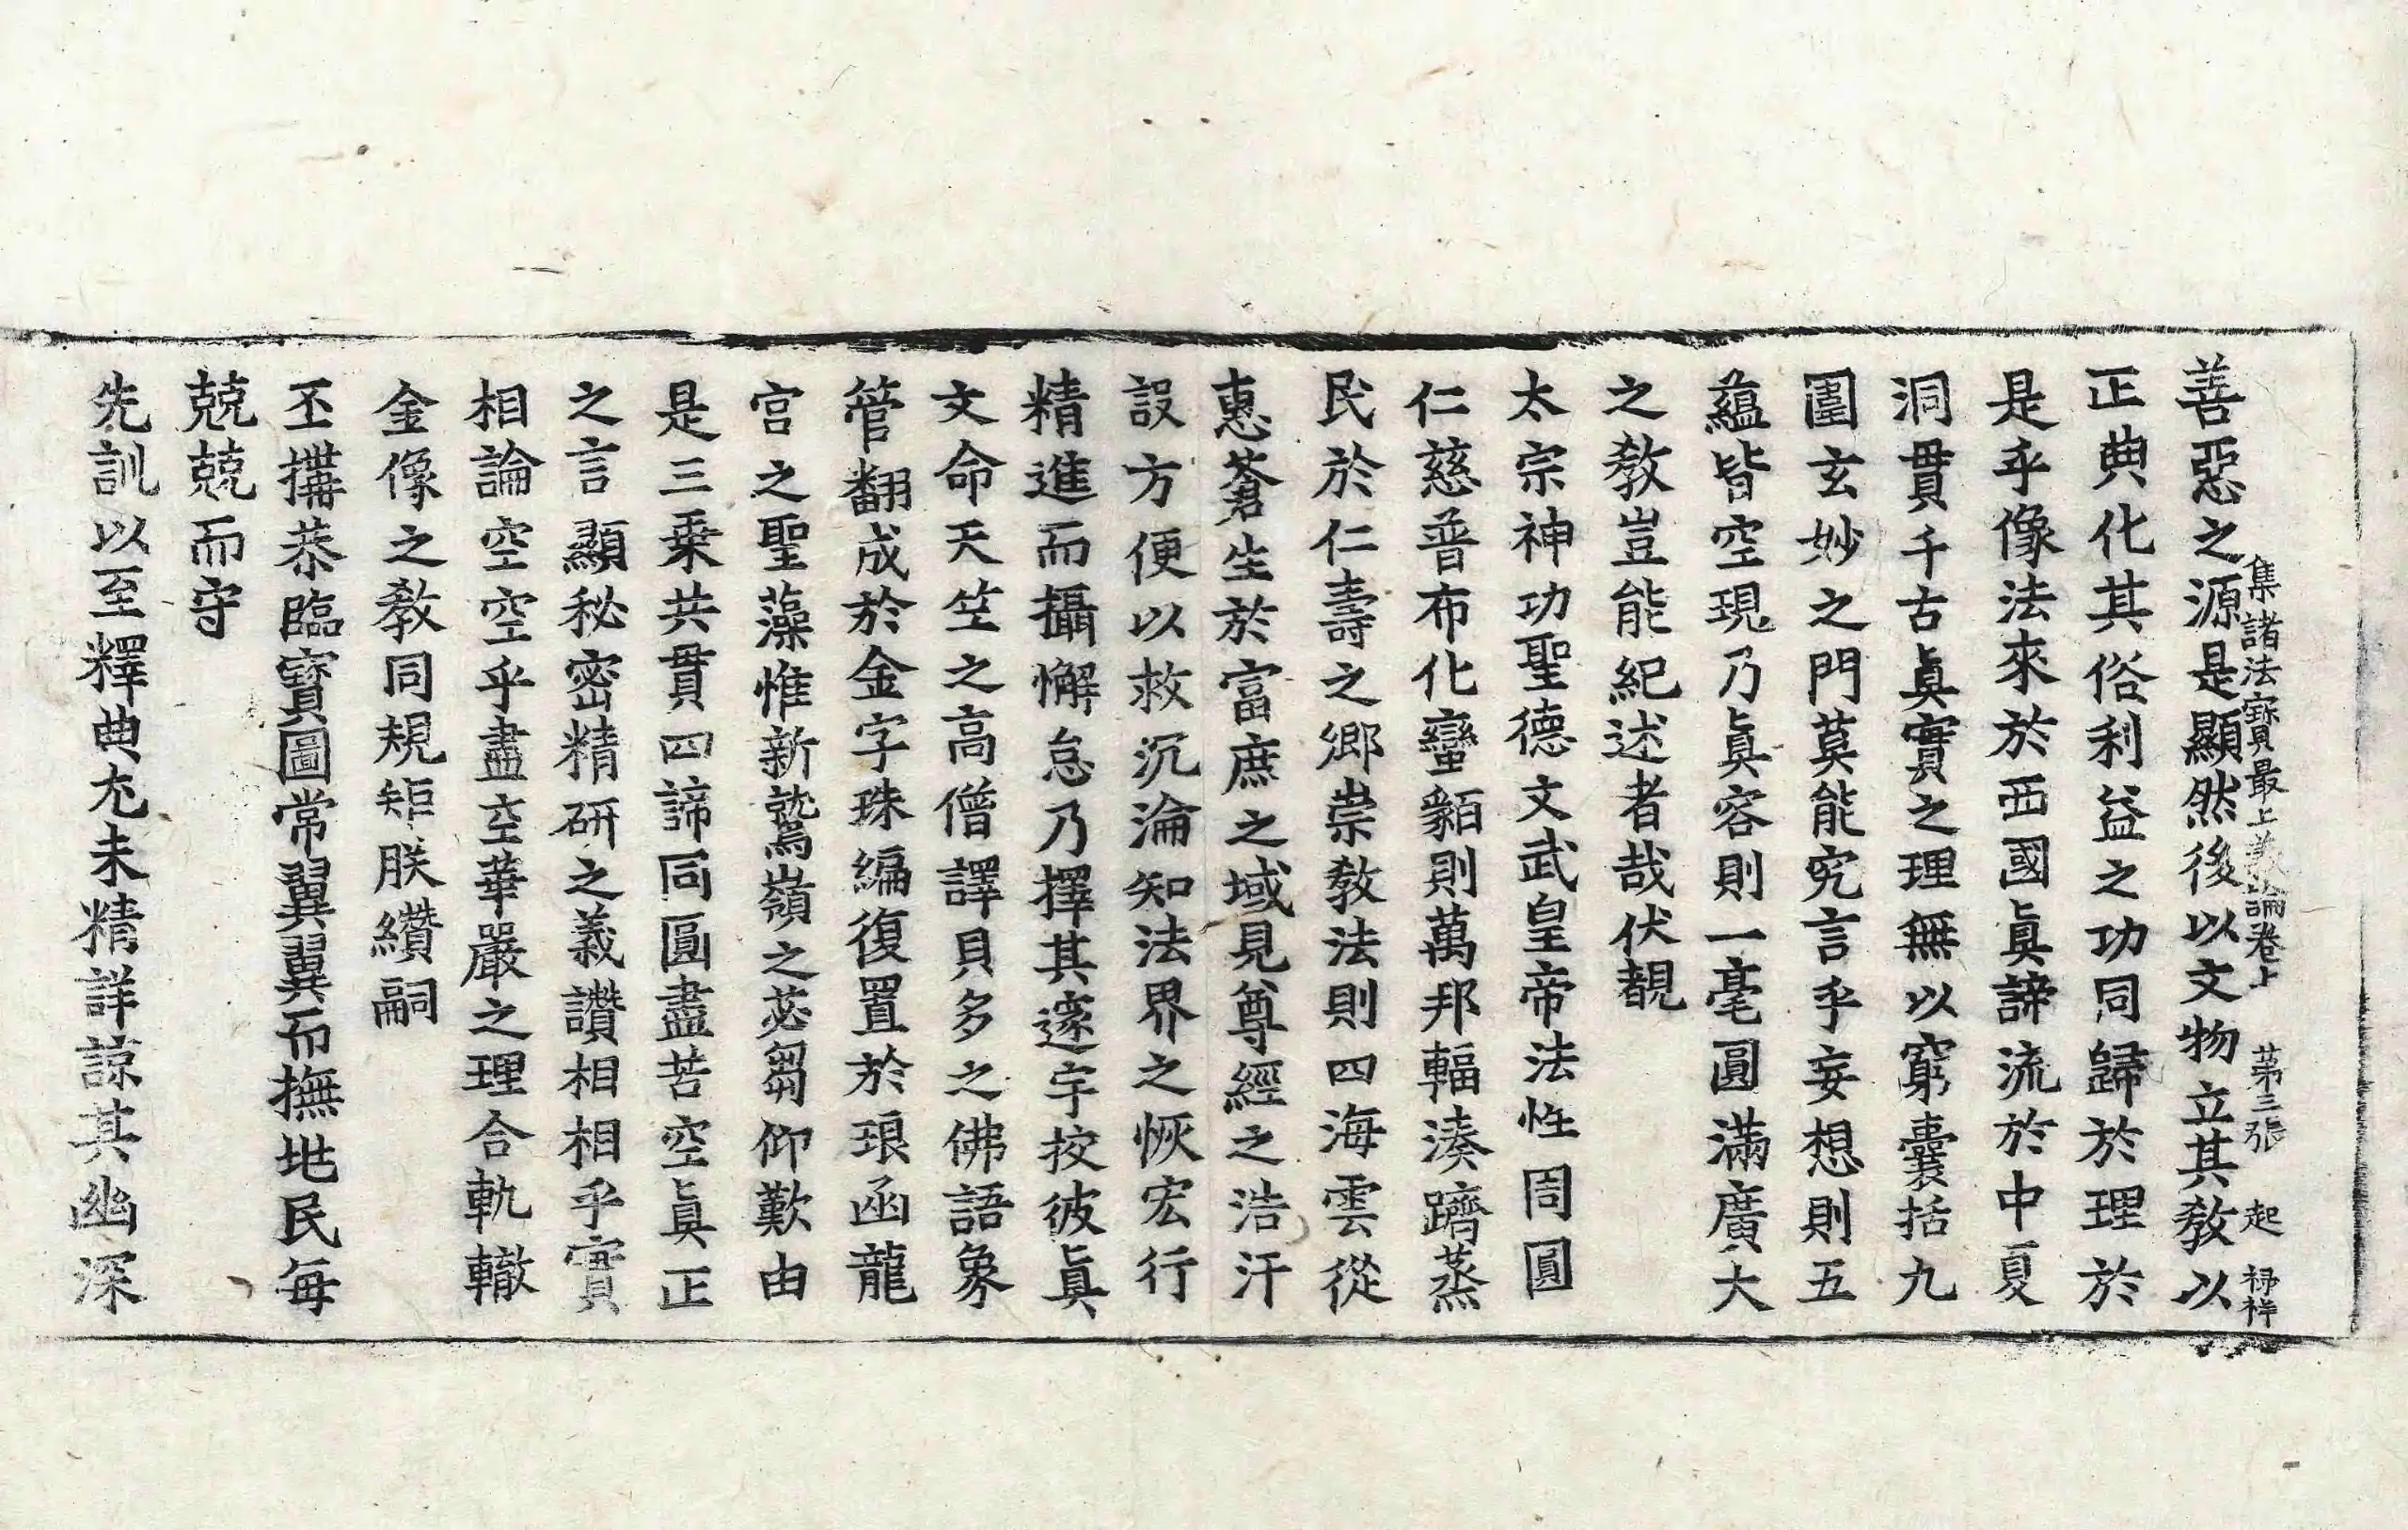 集諸法寶最上義論卷上　第三張　起　祿祥
善惡之源是顯然後以文物立其敎以
正典化其俗利益之功同歸於理於
是乎像法來於西國眞諦流於中夏
洞貫千古眞實之理無以窮囊括九
圍玄妙之門莫能究言乎妄想則五
蘊皆空現乃眞容則一毫圓滿廣大
之敎豈能紀述者哉伏覩
太宗神功聖德文武皇帝法性周圓
仁慈普布化蠻貊則萬邦輻湊躋蒸
民於仁壽之鄉崇敎法則四海雲從
惠蒼生於富庶之域見尊經之浩汗
設方便以救沉淪知法界之恢宏行
精進而攝懈怠乃擇其邃宇挍彼眞
文命天竺之高僧譯貝多之佛語象
管翻成於金字珠編復置於琅函龍
宮之聖藻惟新鷲嶺之苾芻仰歎由
是三乘共貫四諦同圓盡苦空眞正
之言顯秘密精硏之義讚相相乎實
相論空空乎盡空華嚴之理合軌轍
金像之敎同規矩朕纘嗣
丕搆恭臨寶圖常翼翼而撫地民每
兢兢而守
先訓以至釋典尤未精詳諒其幽深